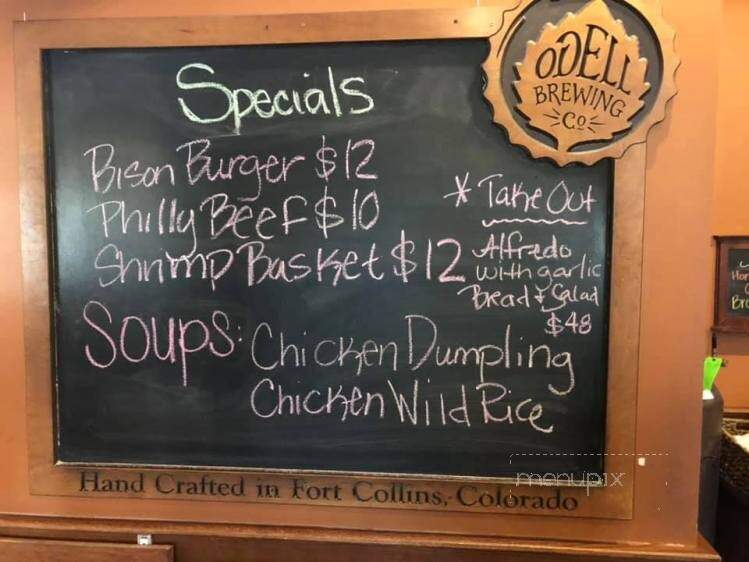 ODELL
BREWING
Co
Specials
Bison Burger $12
Philly Beef $10
Shrimp Basket $12
* Take Out
Alfredo
with garlic
Bread & Salad
$48
Soups: Chicken Dumpling
Chicken Wild Rice
Hand Crafted in Fort Collins, Colorado
menupix